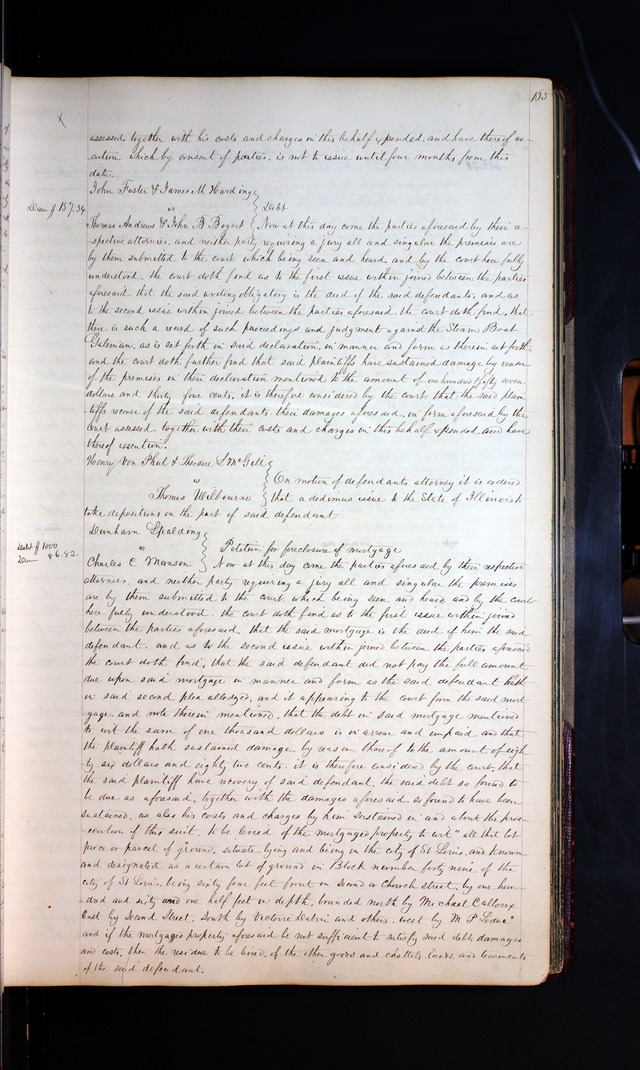 183
X
assessed together with his costs and charges in this behalf expended and have thereof ex-
ecution which by consent of parties, is not to issue until four months from this
date.
John Foster & James M Harding
vs Debt
Dam $157.34
Thomas Andrews & John B Bogert Now at this day come the parties aforesaid by their re-
spective attornies, and neither party requiring a jury all and singular the premises are
by them submitted to the court which being seen and heard and by the court here fully
understood, the court doth find as to the first issue within joined between the parties
aforesaid, that the said writing obligatory is the deed of the said defendants, and as
to the second issue within joined between the parties aforesaid, the court doth find, that
there is such a record of such proceedings and judgment against the Steam Boat
as is set forth in said declaration, in manner and form as therein set forth.
and the court doth further find that said plaintiffs have sustained damage by reason
of the premises in their declaration mentioned to the amount of one hundred fifty seven
dollars and thirty four cents, it is therefore considered by the court that the said plain
tiffs recover of the said defendants their damages aforesaid, in form aforesaid by the
court assessed, together with their costs and charges in this behalf expended, and have
thereof execution.
Henry Von Phul & Theodore L McGill
vs On motion of defendants attorney it is ordered
Thomas Wilbourne that a dedimus issue to the State of Illinois to
take depositions on the part of said defendant
Spalding
vs Petition for foreclosure of mortgage
Debt $1000
Dam 86.82
Charles C Manson Now at this day come the parties aforesaid by their respective
attornies, and neither party requiring a jury all and singular the premises
are by them submitted to the court which being seen and heard and by the court
here fully understood, the court doth find as to the first issue within joined
between the parties aforesaid, that the said mortgage is the deed of him the said
defendant, and as to the second issue within joined between the parties aforesaid
the court doth find, that the said defendant did not pay the full amount
due upon said mortgage in manner and form as the said defendant hath
in said second plea alledged, and it appearing to the court from the said mort
gage and note therein mentioned, that the debt in said mortgage mentioned
to wit the sum of one thousand dollars is in arrear and unpaid and that
the plaintiff hath sustained damage by reason thereof to the amount of eigh
ty six dollars and eighty two cents, it is therefore considered by the court, that
the said plaintiff have recovery of said defendant, the said debt so found to
be due as aforesaid, together with the damages aforesaid so found to have been
sustained, as also his costs and charges by him sustained in and about the pros
ecution of this suit, to be levied of the mortgaged property to wit "all that lot
piece or parcel of ground, situate lying and being in the city of St Louis, and known
and designated as a certain lot of ground in Block number forty nine of the
city of St Louis, being sixty four feet front on Second or Church street, by one hun
dred and sixty and one half feet in depth, bounded north by Michael
East by Second Street, South by and others, west by M P Leduc"
and if the mortgaged property aforesaid be not sufficient to satisfy said debt, damages
and costs, then the residue to be levied, of the other goods and chattels lands and tenements
of the said defendant.